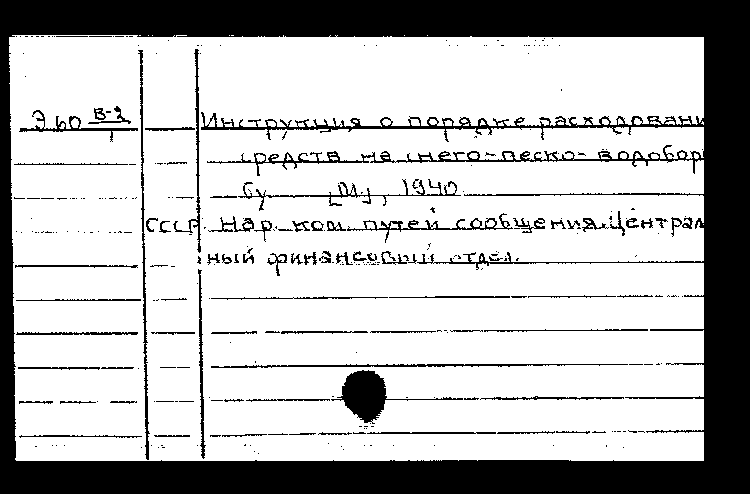 Э 60 В-2/1
Инструкция о порядке расходовани
средств на снего-песко-водобор
бу [М], 1940
СССР. Нар. ком. путей сообщения. Централ
ный финансовый отдел.